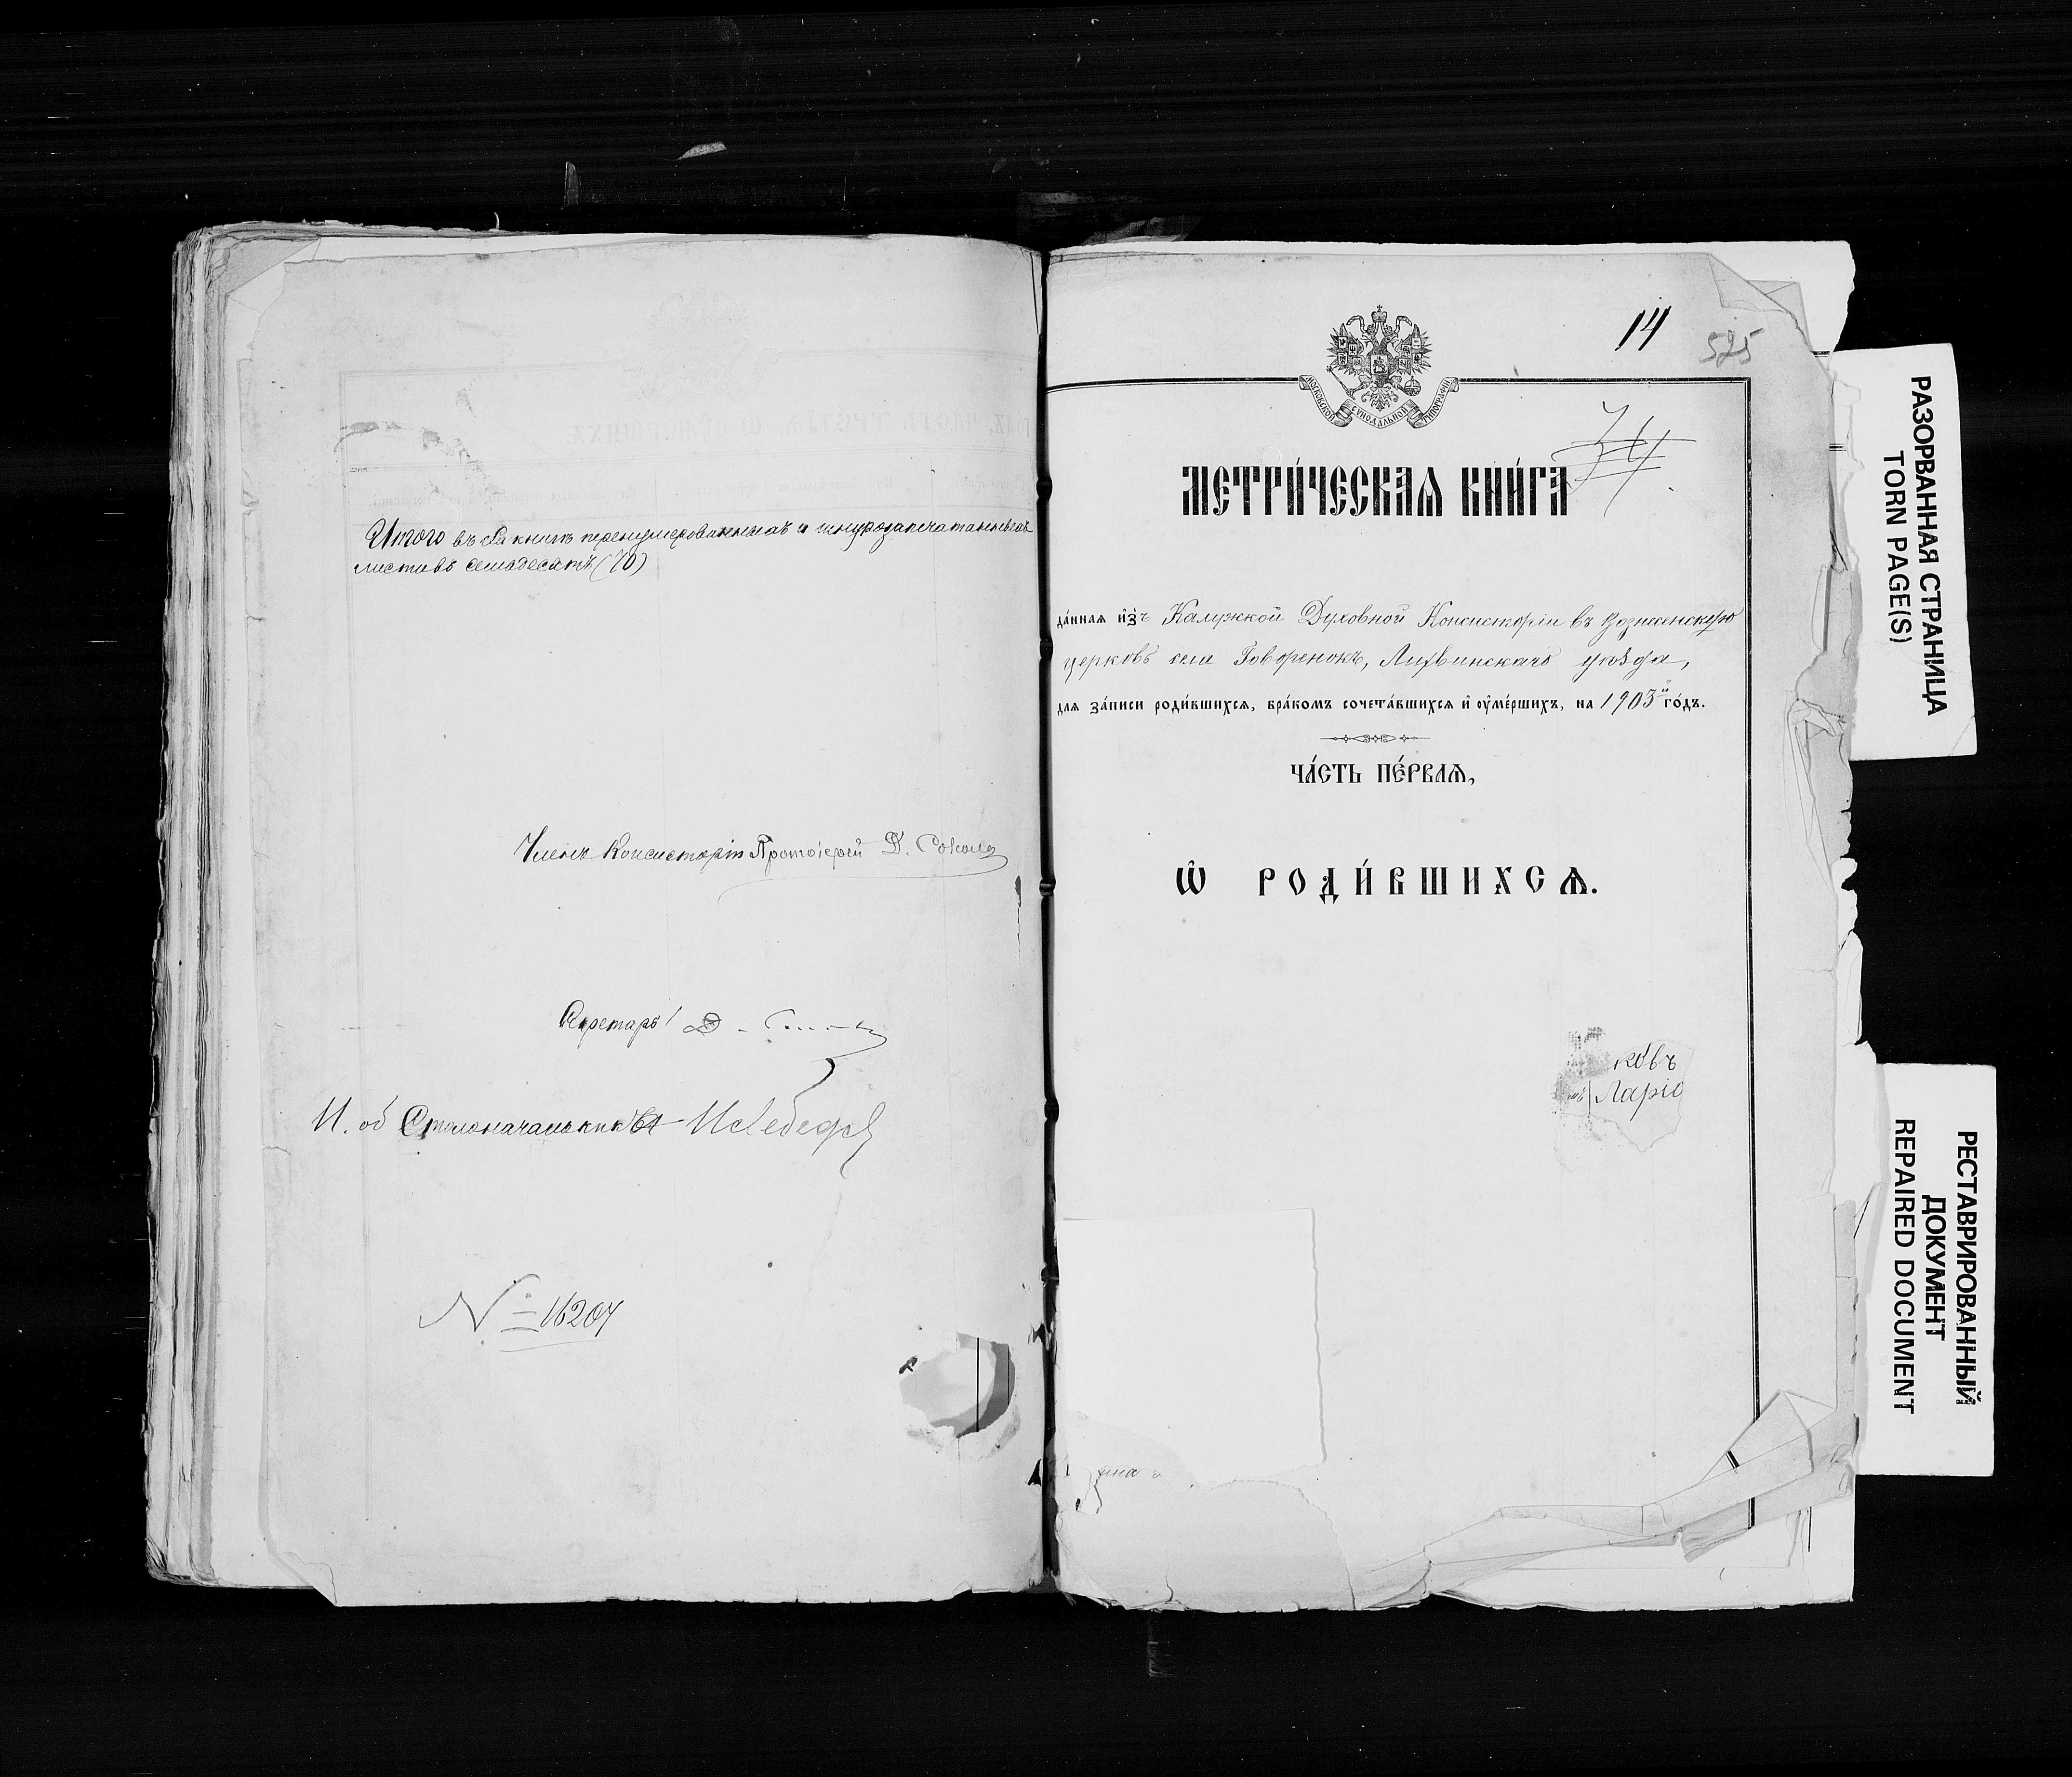 Итого въ сей книгѣ перенумерованныхъ и шнурозапечатанныхъ
листовъ семьдесятъ (70)
Членъ Консисторіи Протоіерей Д.
Секретарь Д.
И. об Столоначальника И Лебедев
№ 16204
14
525
МОСКОВСКОЙ СѴНОДАЛЬНОЙ ТИПОГРАФІИ
34
МЕТРИ́ЧЕСКАѦ КНИ́ГА
да́ннаѧ и҆зъ Калужской Духовной Консисторіи въ Вознесенскую
церковь села Говоренокъ, Лихвинскаго уѣзда,
для за́писи роди́вшихсѧ, бра́комъ сочета́вшихсѧ и҆ оу҆ме́ршихъ, на 1903й го́дъ.
ЧА́СТЬ ПЕ́РВАѦ,
Ѽ РОДИ́ВШИХСѦ.
ковъ
Ларіо
РАЗОРВАННАЯ СТРАНИЦА
TORN PAGE(S)
РЕСТАВРИРОВАННЫЙ
ДОКУМЕНТ
REPAIRED DOCUMENT